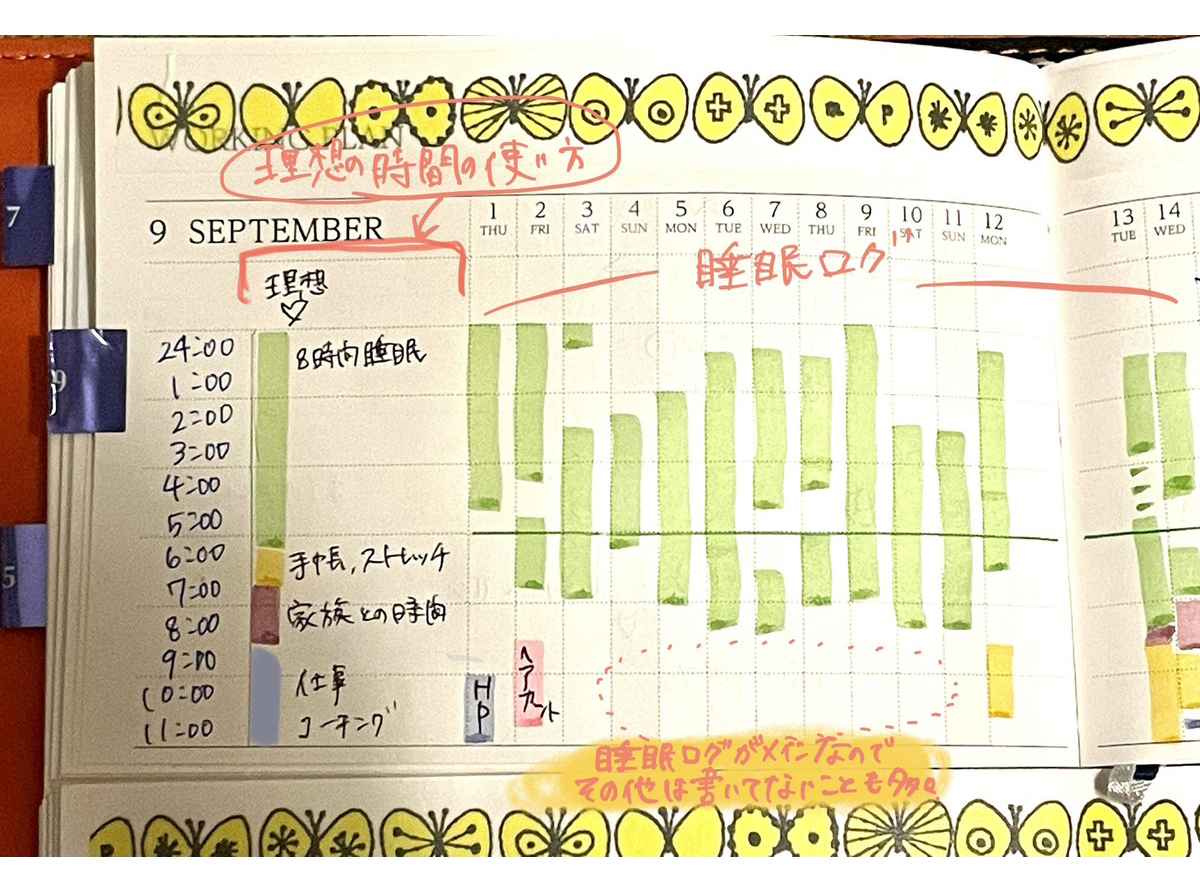 WORKING PLAN
理想の時間の使い方
9 SEPTEMBER
1 2 3 4 5 6 7 8 9 10 11 12 13 14
THU FRI SAT SUN MON TUE WED THU FRI SAT SUN MON TUE WED
睡眠ログ
理想
24:00 8時間睡眠
1:00
2:00
3:00
4:00
5:00
6:00 手帳,ストレッチ
7:00
家族との時間
8:00
9:00
10:00 仕事
11:00 コーチング
HP
ヘアカット
睡眠ログがメインなので
その他は書いてないことも多々
7
9
5